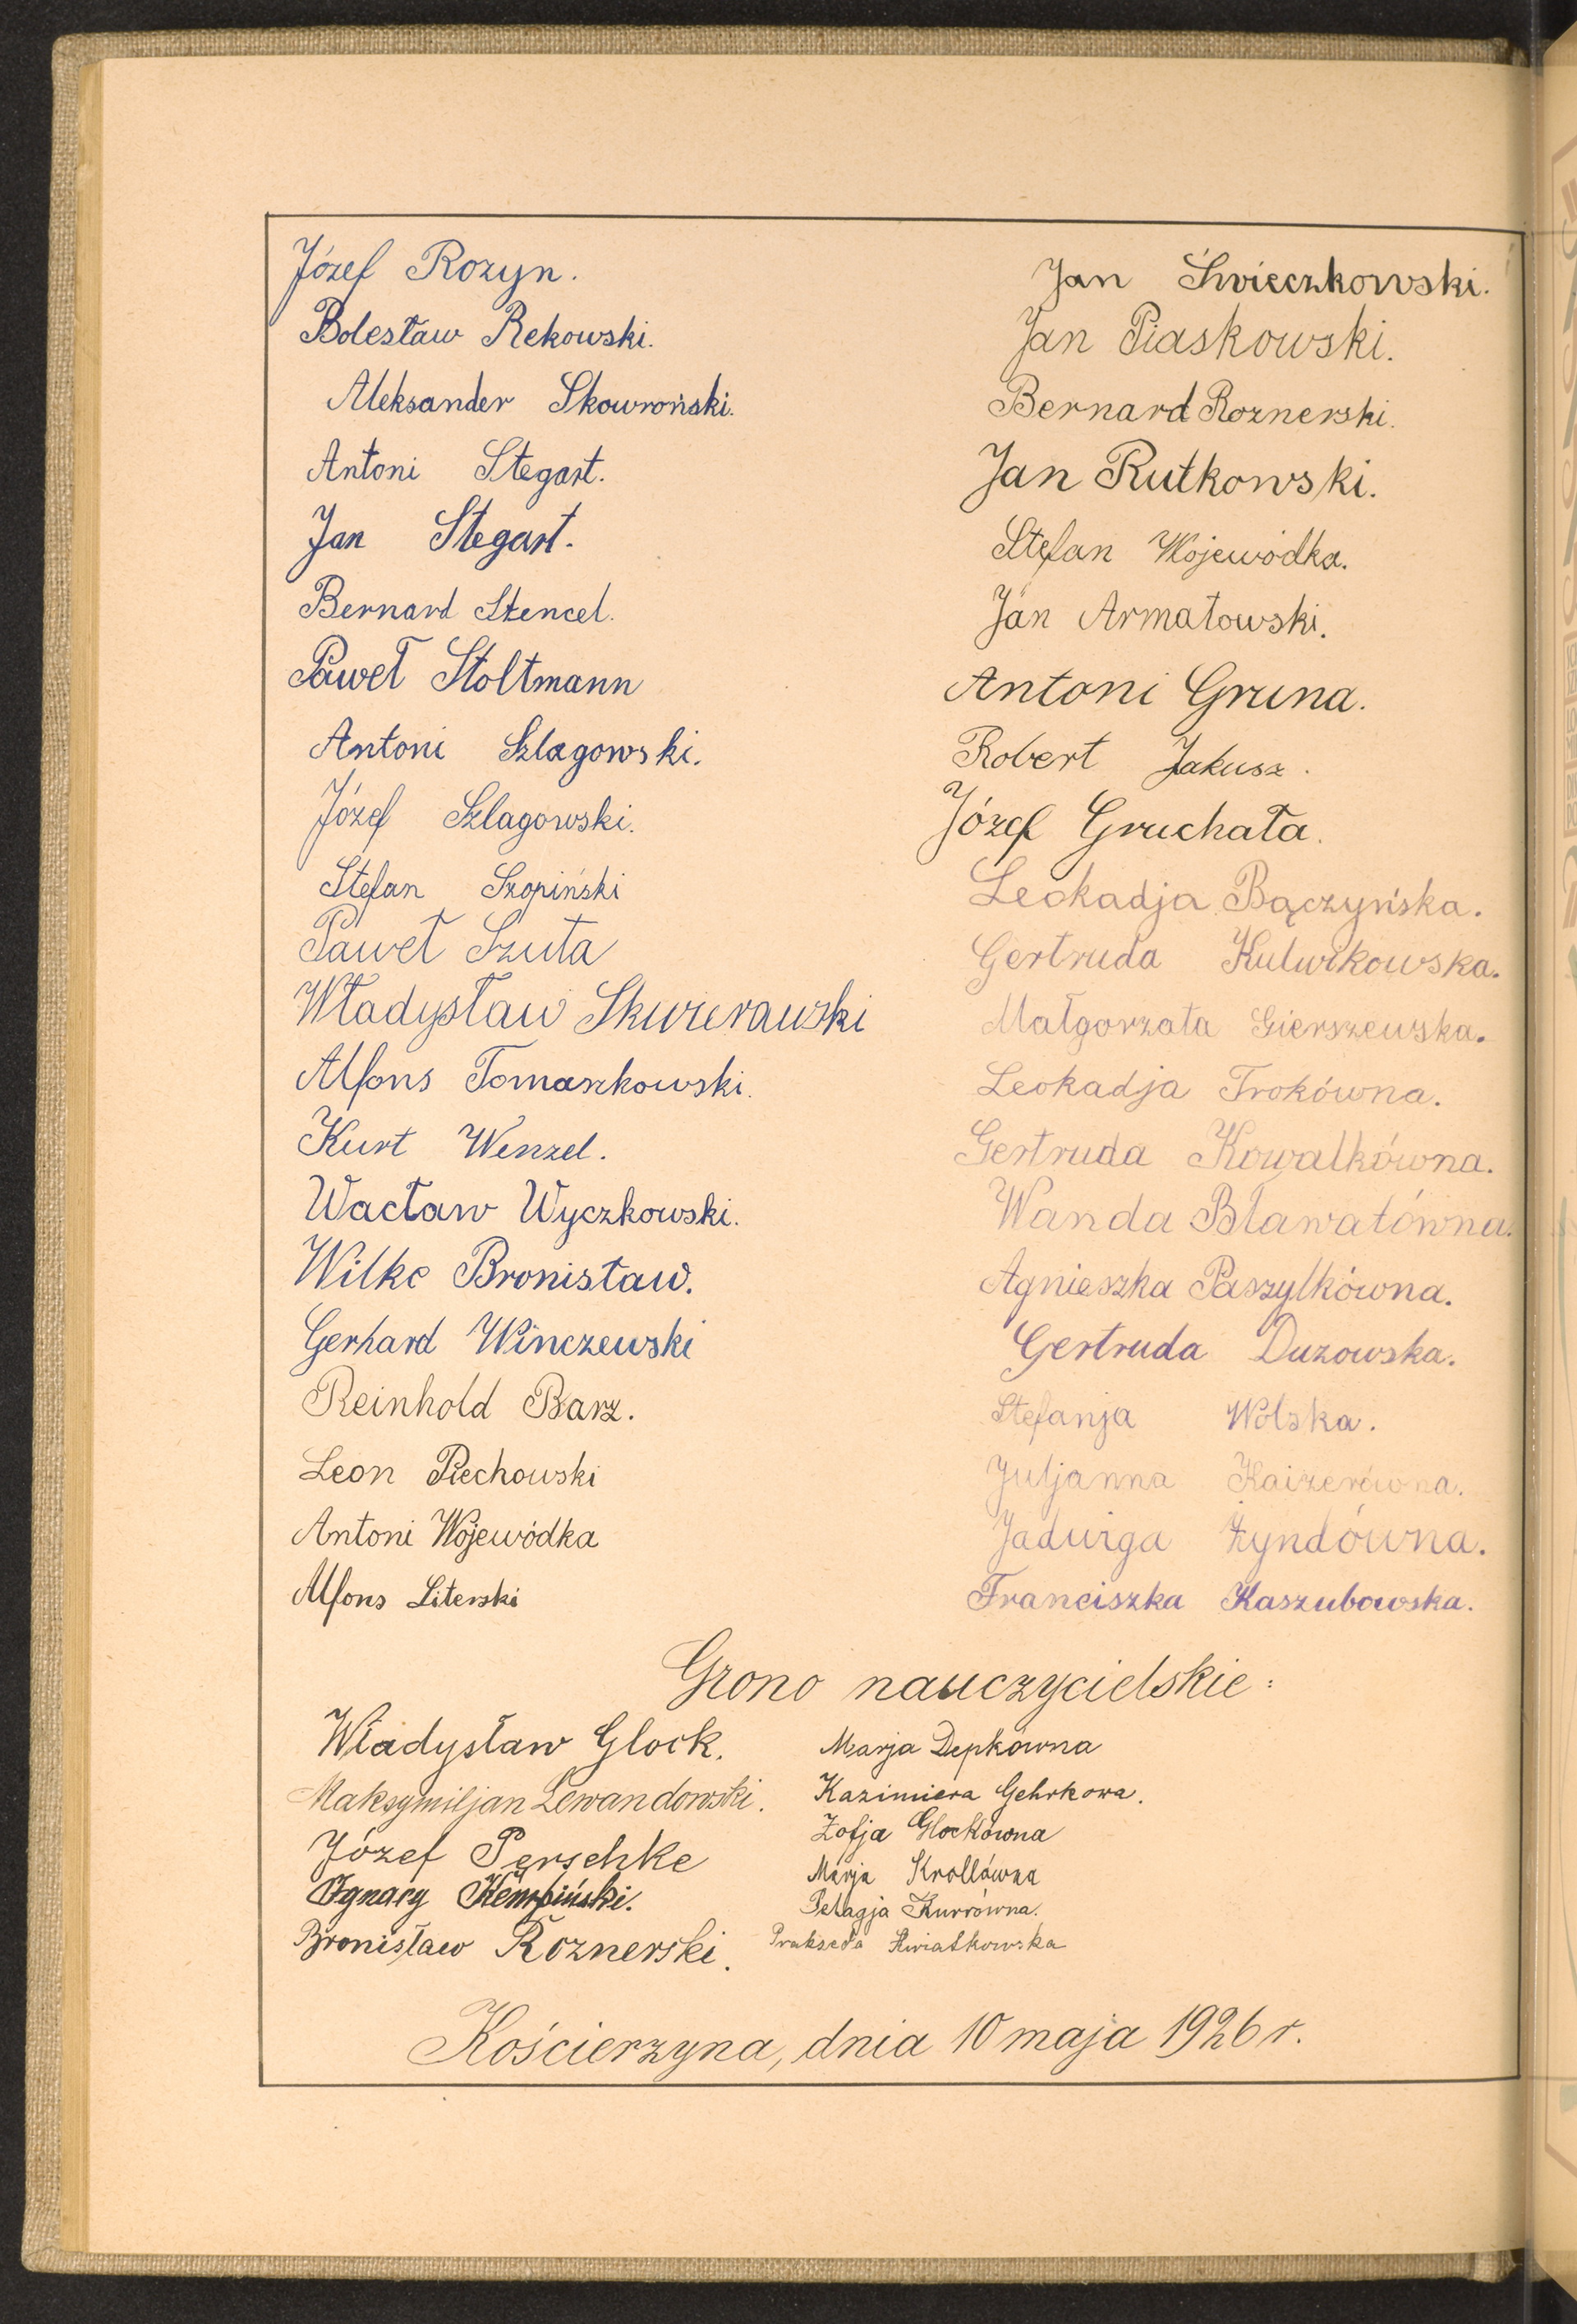 Józef Rozyn.
Bolesław Rekowski.
Aleksander Skowroński.
Antoni Stegart.
Jan Stegart.
Bernard Stencel.
Paweł Stoltmann
Antoni Szlagowski.
Józef Szlagowski.
Stefan Szopiński
Paweł Szuta
Władysław Skwierawski
Alfons Tomaszkowski.
Kurt Wenzel.
Wacław Wyczkowski.
Wilke Bronisław.
Gerhard Winczewski
Reinhold Barz.
Leon Piechowski
Antoni Wojewódka
Alfons Literski
Jan Świeczkowski.
Jan Piaskowski.
Bernard Roznerski.
Jan Rutkowski.
Stefan Wojewódka.
Jan Armatowski.
Antoni Gruna.
Robert Jakusz.
Józef Gruchała.
Leokadja Bączyńska.
Gertruda Kulwikowska.
Małgorzata Gierszewska.
Leokadja Trokówna.
Gertruda Kowalkówna.
Wanda Bławatówna.
Agnieszka Paszylkówna.
Gertruda Duzowska.
Stefanja Wolska.
Juljanna Kaizerówna.
Jadwiga Żyndówna.
Franciszka Kaszubowska.
Grono nauczycielskie:
Władysław Glock.
Maksymiljan Lewandowski.
Józef Perschke
Ignacy Kempiński.
Bronisław Roznerski.
Marja Depkówna
Kazimiera Gehrkowa.
Zofja Glockówna
Marja Krollówna
Pelagja Kurrówna.
Prakseda Kwiatkowska
Kościerzyna, dnia 10 maja 1926 r.